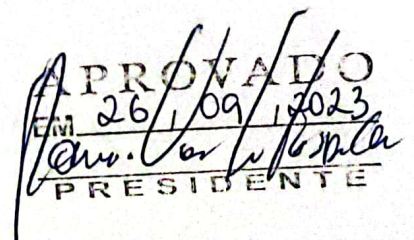 APROVADO
EM 26 / 09 / 2023
PRESIDENTE